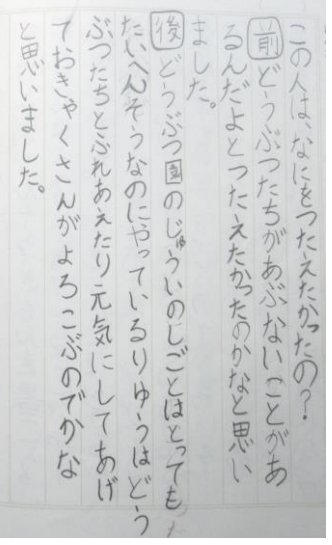 この人は、なにをつたえたかったの?
前 どうぶつたちがあぶないことがあ
るんだよとつたえたかったのかなと思い
ました。
後 どうぶつ園のじゅういのしごとはとっても
たいへんそうなのにやっているりゆうはどう
ぶつたちとふれあえたり元気にしてあげ
ておきゃくさんがよろこぶのでかな
と思いました。